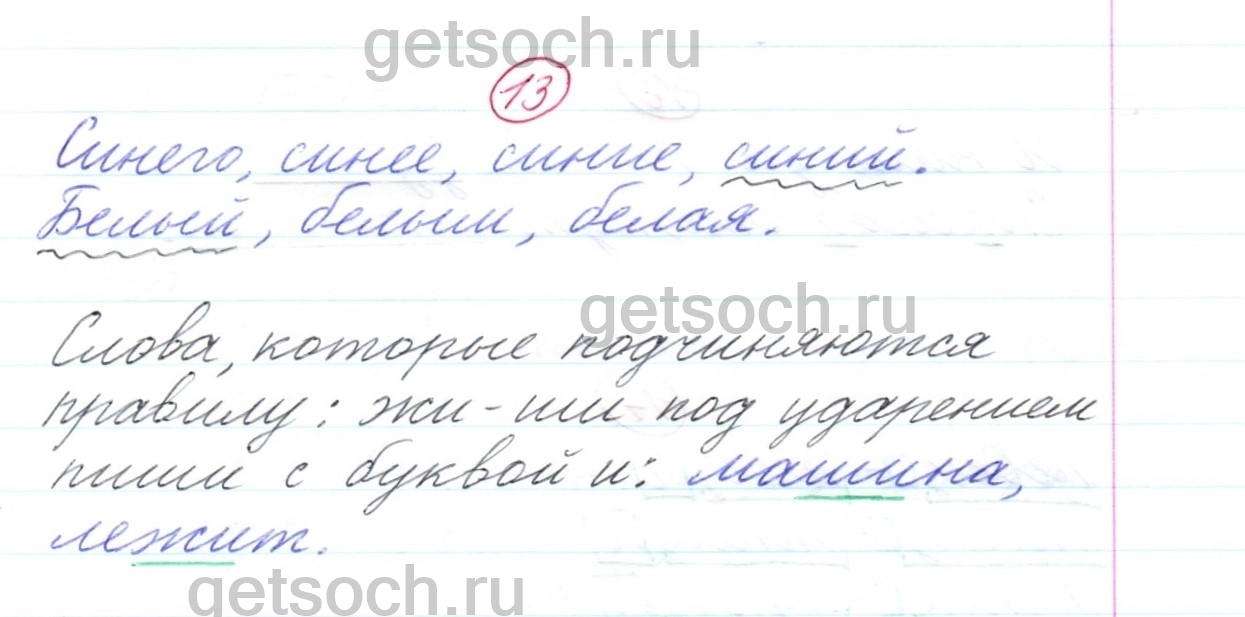 getsoch.ru
13
Синего, синее, синие, синий.
Белый, белым, белая.
getsoch.ru
Слова, которые подчиняются
правилу: жи-ши под ударением
пиши с буквой и: машина,
лежит.
getsoch.ru